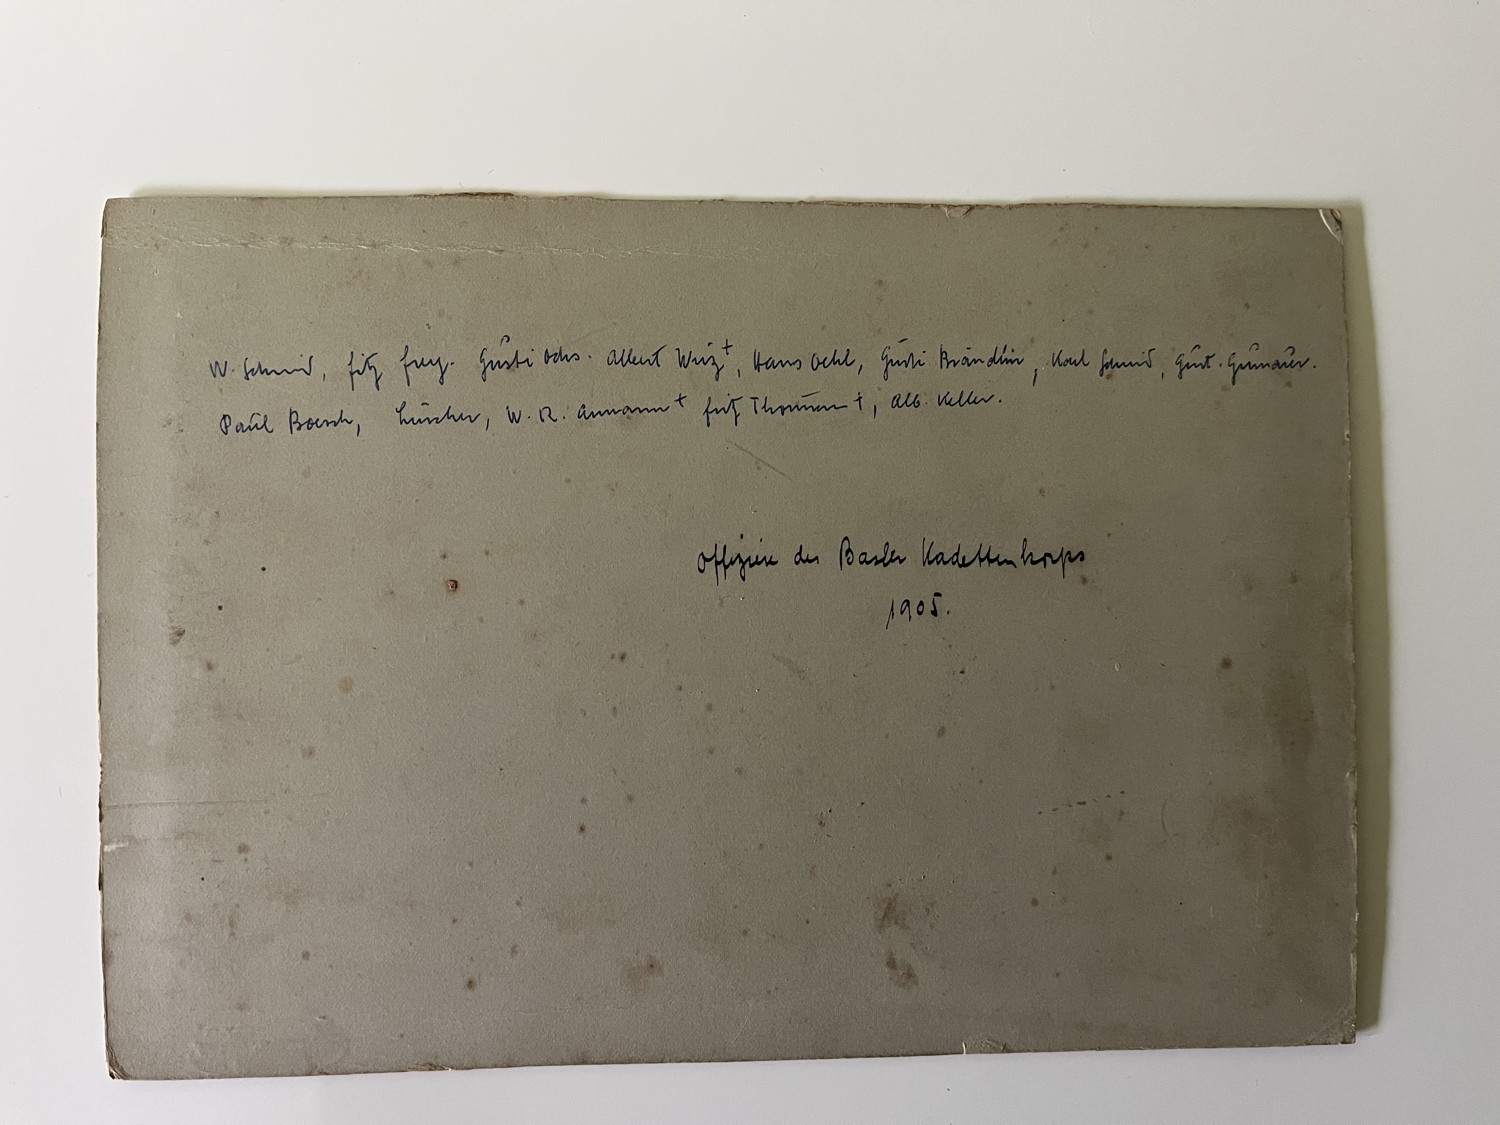 W. Schmid, Fritz Frey. Gusti Ochs. Albert Wirz +, Hans Oehl, Gusti Brändlin, Karl Schmid, Gust.
Paul Boesch, Lüscher, W. R. Ammann + Fritz Thommen +, Alb. Keller.
Offiziere des Basler Kadettenkorps
1905.